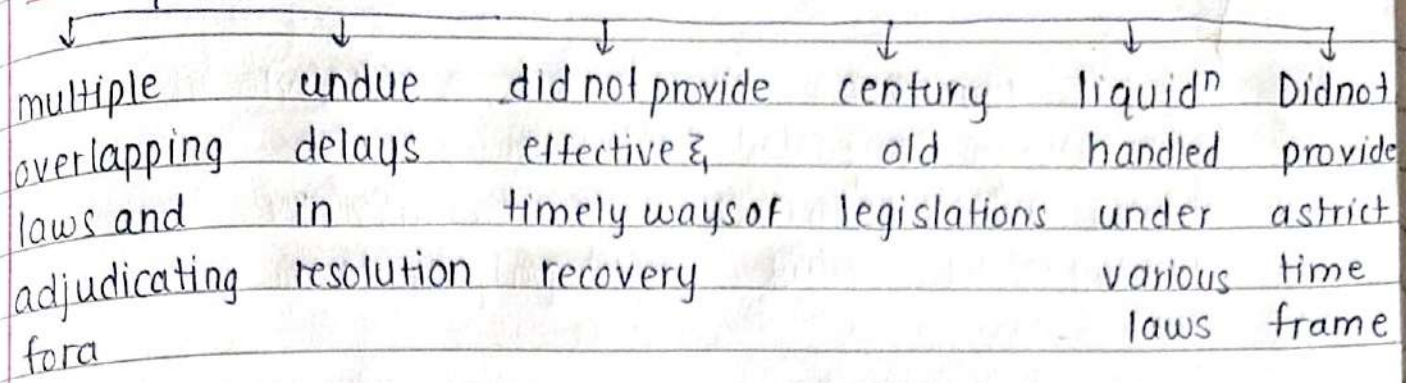 multiple
overlapping
laws and
adjudicating
fora
undue
delays
in
resolution
did not provide
effective &
timely ways of
recovery
century
old
legislations
liquidⁿ
handled
under
various
laws
Didnot
provide
astrict
time
frame